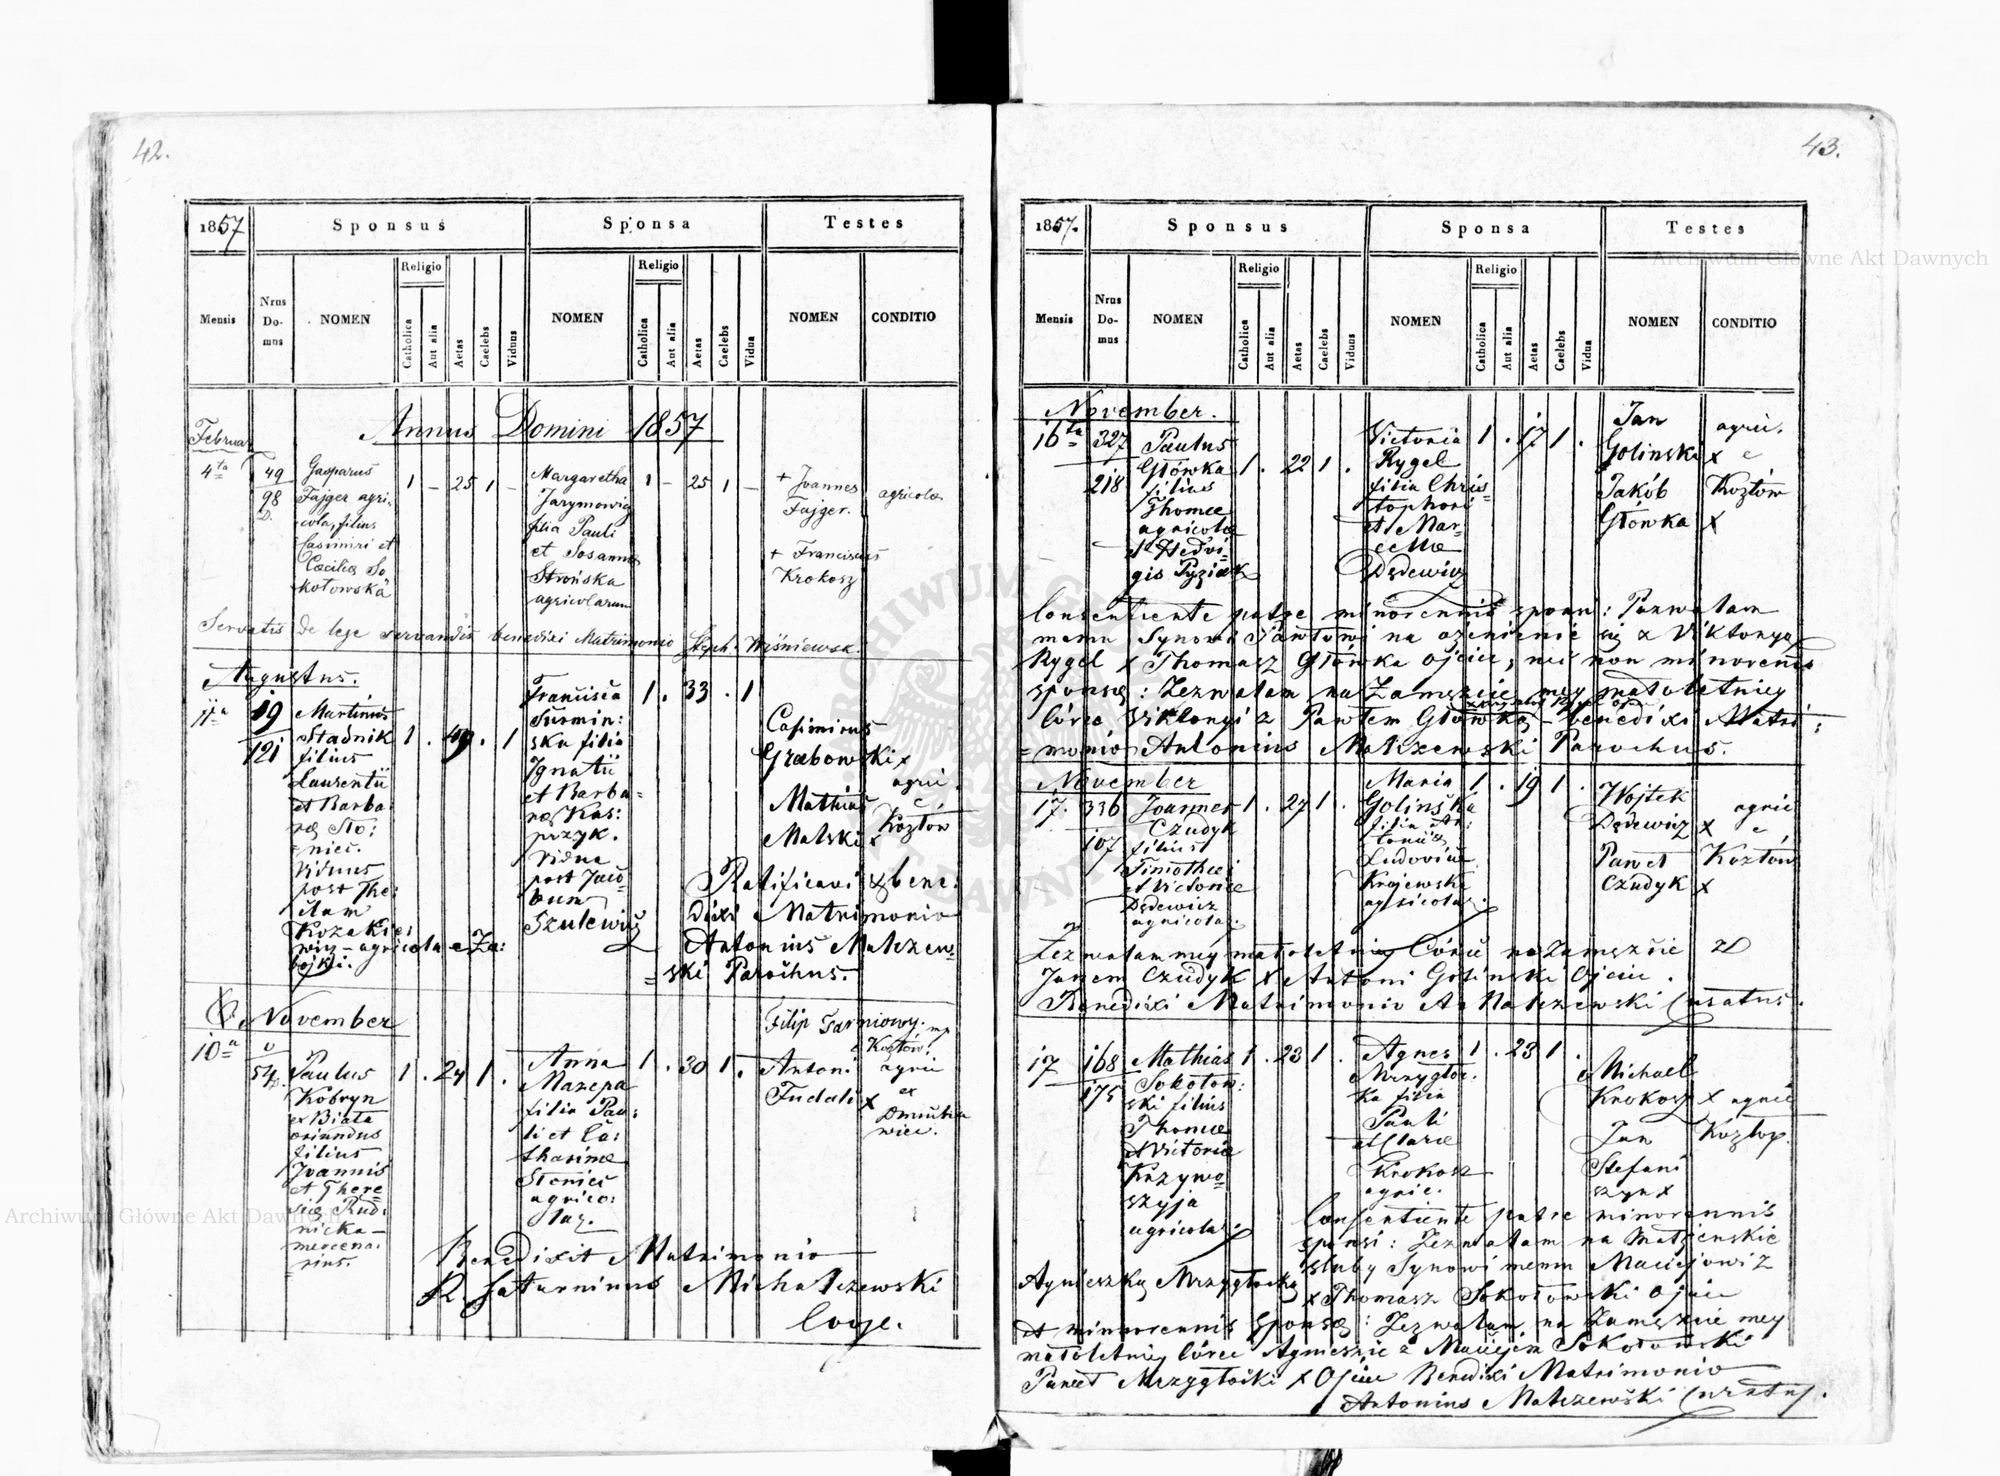 42.
1857
Sponsus
Sponsa
Testes
Mensis
Nrus Domus
NOMEN
Religio
Catholica
Aut alia
Aetas
Caelebs
Viduus
NOMEN
Religio
Catholica
Aut alia
Aetas
Caelebs
Vidua
NOMEN
CONDITIO
Annus Domini 1857
Februar
4ta
49
98
D.
Gasparus
Fajger agri-
cola, filius
Casimiri et
Cæciliæ So
kołowska
1 – 25 1 –
Margaretha
Jarymowicz
filia Pauli
et Sosanna
Strońska
agricolarum
1 – 25 1 –
+ Joannes
Fajger.
+ Franciscus
Krokosz
agricolæ
Servatis de lege servandis benedixi Matrimonio Steph. Wiśniewsk.
Augustus.
11a
19
121
Martinus
Stadnik
filius
Laurentii
et Barba
ræ Sto:
niec.
Viduus
post The:
clam
Kozakie:
wicz – agricola e Za:
bojki.
1 . 49 . 1
Francisca
Surmin:
ska filia
Ignatii
et Barba=
ræ Kas:
przyk.
Vidua
post Jaco=
bum
Szulewicz
1 . 33 . 1
Casimirus
Grabowski x
Mathias
Malski x
agric.
e
Kozłów
Ratificavi & bene:
dixi Matrimonio
Antonius Malczew=
=ski Parochus.
November
10a
54
Paulus
Kobryn
ex Biała
oriundus
filius
Joannis
et There=
siæ Rud:
nicka –
mercena:
rius.
1 . 24 1 .
Anna
Mazepa
filia Pau:
li et Ca:
tharinæ
Stoniec
agrico:
lar.
1 . 30 1 .
Filip Tarniowy. mp
Kozłów.
Antoni
Fudali x
agric
ex
Benedixit Matrimonio
R. Saturninus Michalczewski
Coop.
43.
1857.
Sponsus
Sponsa
Testes
Mensis
Nrus Domus
NOMEN
Religio
Catholica
Aut alia
Aetas
Caelebs
Viduus
NOMEN
Religio
Catholica
Aut alia
Aetas
Caelebs
Vidua
NOMEN
CONDITIO
November.
16ta
327
218
Paulus
Główka
filius
Thomæ
agricolæ
et Hedvi-
gis Pyziak
1 . 22 1 .
Victoria
Rygel
filia Chris-
tophori
et Mar-
cellæ
Dędewicz
1 . 17 1 .
Jan
Goliński x
Jakób
Główka x
agric.
e
Kozłów
Consentiente patre minorennis sponsi: Pozwalam
memu Synowi Pawłowi na ożenienie się z Viktoryą
Rygel x Thomasz Główka Ojciec, nec non minorenis
sponsæ: Zezwalam na Zamęście mey małoletniey
Córce Viktoryi z Pawłem Główką – benedixi Matri:
=monio Antonius Malczewski Parochus.
November
17.
336
107
Joannes
Czudyk
filius
Timothei
et Victoriæ
Dędewicz
agricola.
1 . 27 1 .
Maria
Golińska
filia An:
tonii &
Ludovicæ
Krajewska
agricola.
1 . 19 1 .
Wojtek
Dędewicz x
Paweł
Czudyk x
agric
e
Kozłów
Zezwalam mey małoletniey Córce na Zamęście z
Janem Czudyk x Antoni Goliński Ojciec.
Benedixi Matrimonio An Malczewski Curatus.
17
168
175
Mathias
Sokołow:
ski filius
Thomæ
et Victoriæ
Krzywo=
szyja
agricola.
1 . 23 1 .
Agnes
Mrzygłoc:
ka filia
Pauli
et Claræ
Krokosz
agric.
1 . 23 1 .
Michael
Krokosz x
Jan
Stefani
szyn x
agric
Consentiente patre minorennis
sponsi: Zezwalam na Małżenskie
śluby Synowi memu Maciejowi z
Agnieszką Mrzygłocką
x Thomasz Sokołowski Ojciec
et minorennis sponsæ: Zezwalam na Zamęście mey
małoletniey Córce Agnieszce z Maciejem Sokołowski
Paweł Mrzygłocki x Ojciec Benedixi Matrimonio
Antonius Malczewski Curatus.
Archiwum Główne Akt Dawnych
Archiwum Główne Akt Dawnych